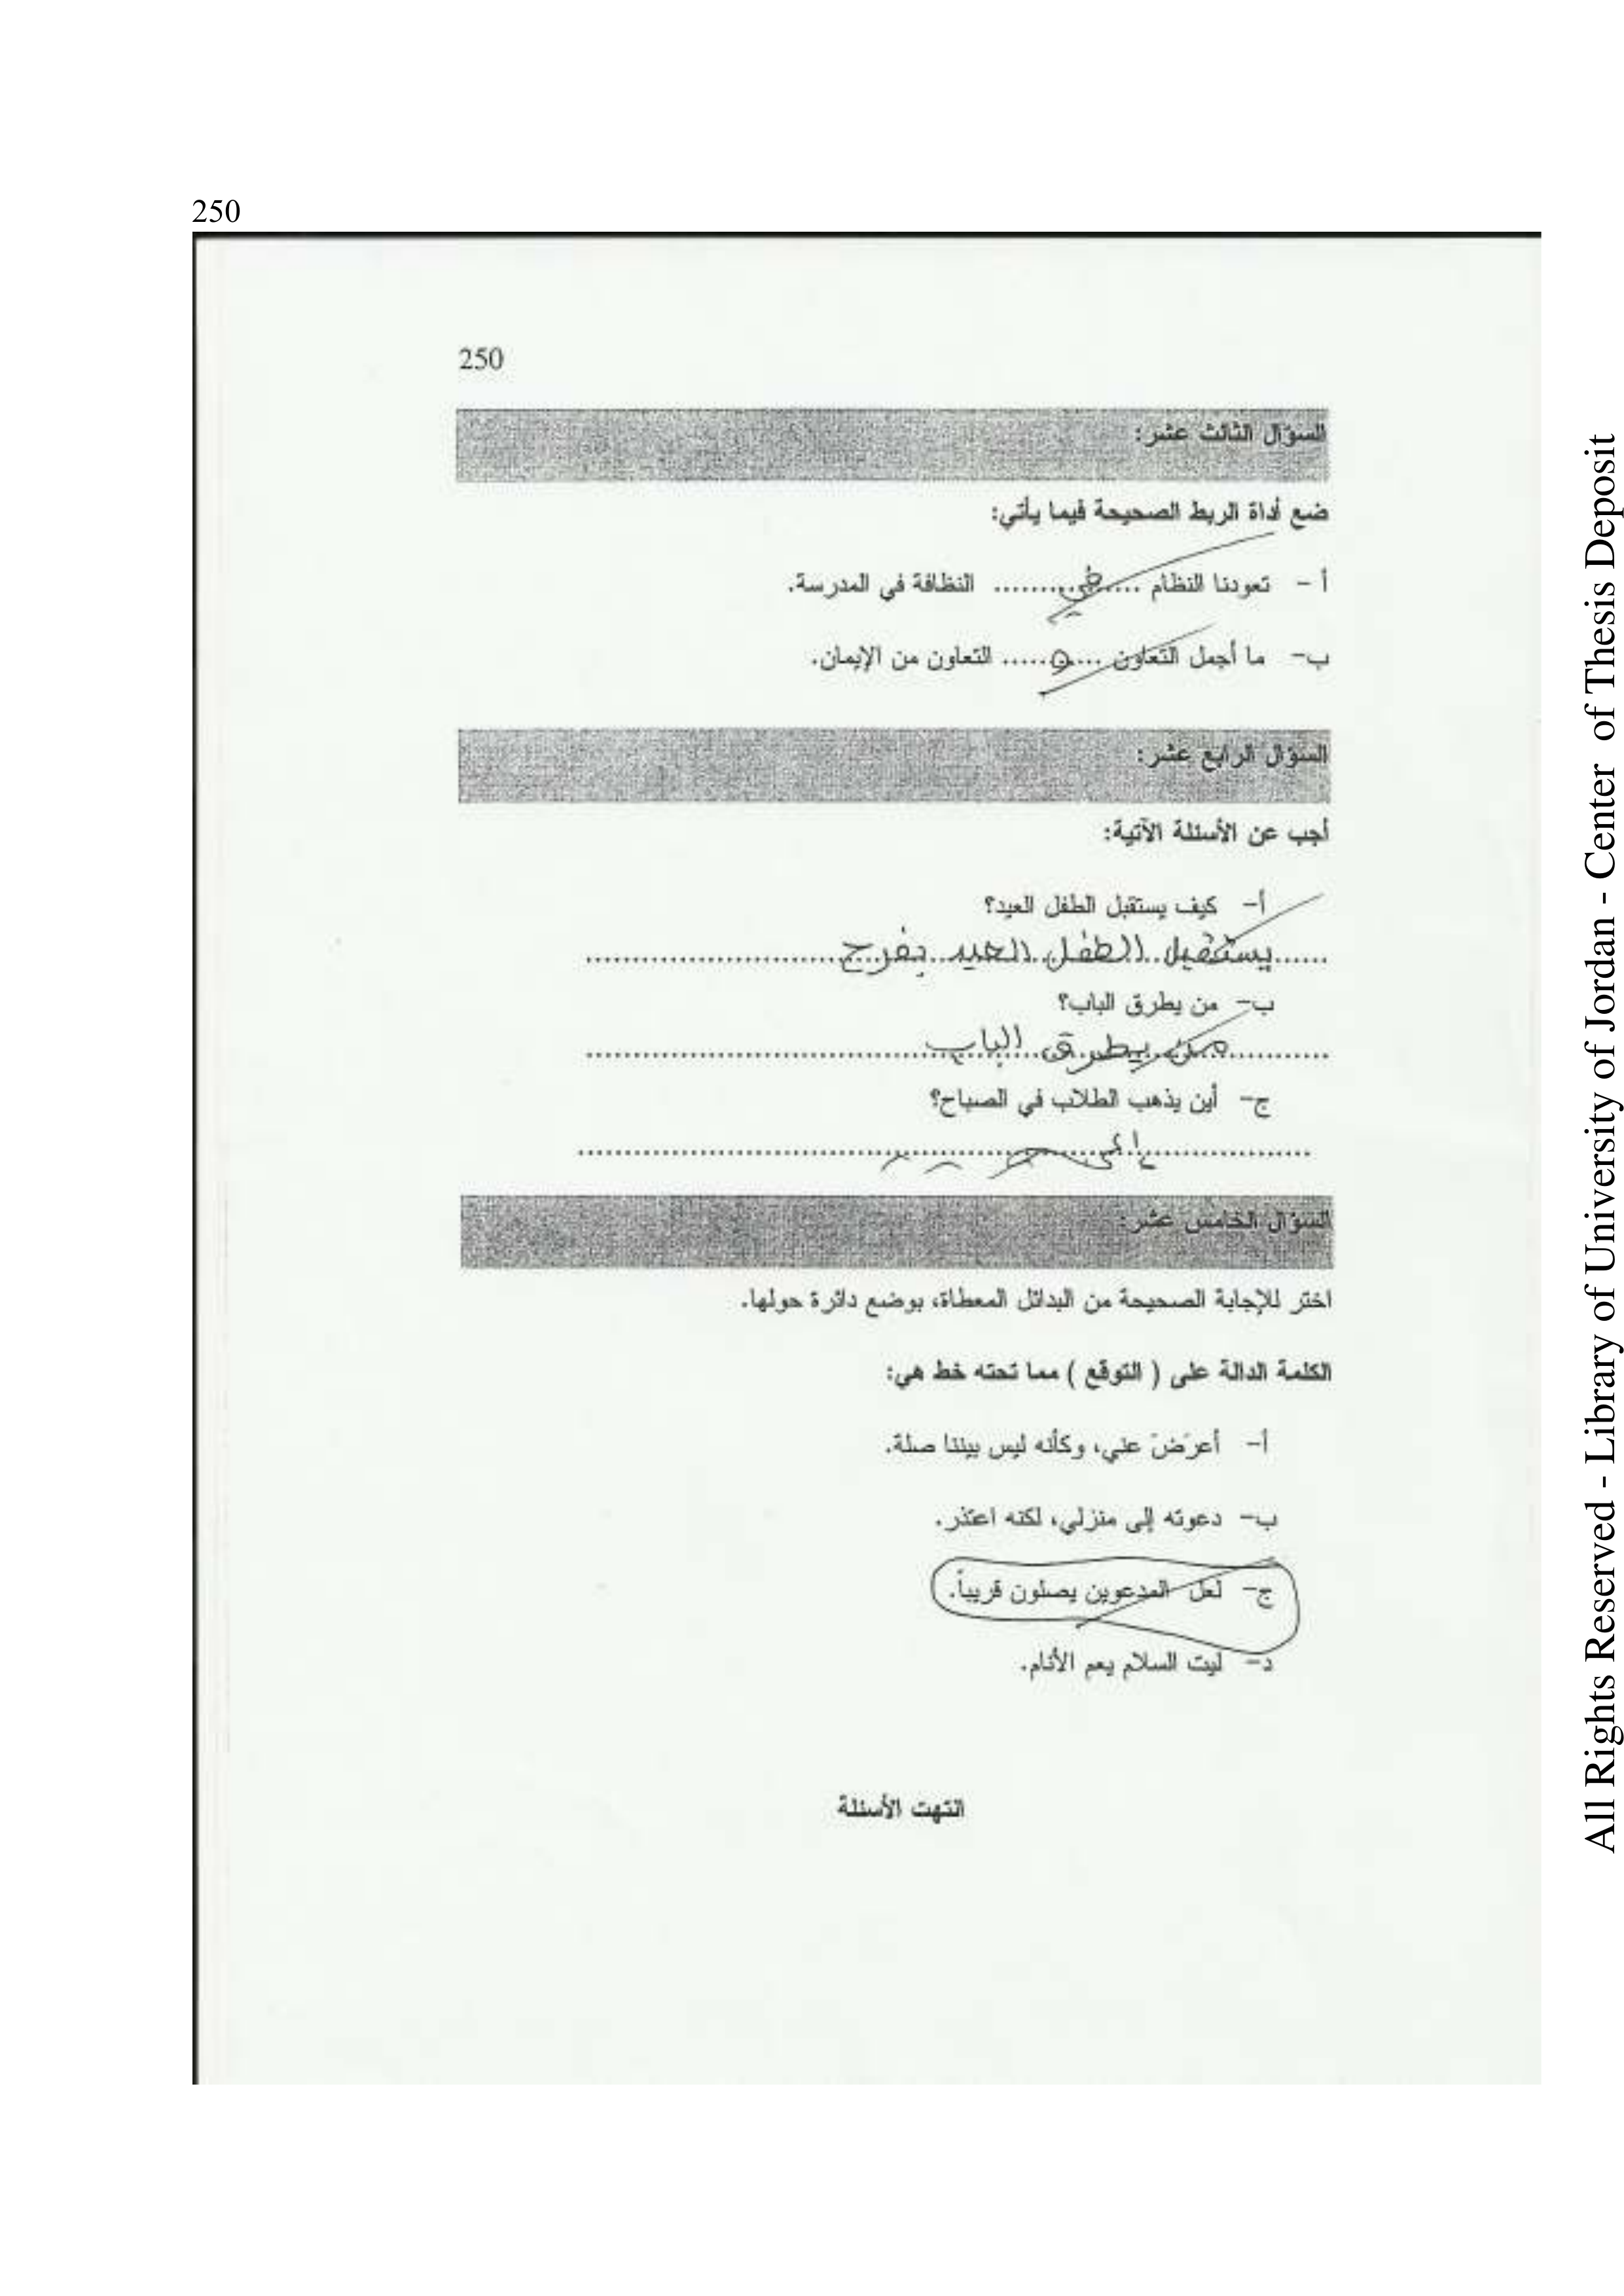 250
250
السؤال الثالث عشر:
ضع أداة الربط الصحيحة فيما يأتي:
أ - تعودنا النظام ......في...... النظافة في المدرسة.
ب- ما أجمل التعاون ....و..... التعاون من الإيمان.
السؤال الرابع عشر:
أجب عن الأسئلة الآتية:
أ- كيف يستقبل الطفل العيد؟
يستقبل الطفل العيد بفرح
ب- من يطرق الباب؟
من يطرق الباب
ج- أين يذهب الطلاب في الصباح؟
السؤال الخامس عشر:
اختر للإجابة الصحيحة من البدائل المعطاة، بوضع دائرة حولها.
الكلمة الدالة على ( التوقع ) مما تحته خط هي:
أ- أعرَضَ عني، وكأنه ليس بيننا صلة.
ب- دعوته إلى منزلي، لكنه اعتذر.
ج- لعل المدعوين يصلون قريباً.
د- ليت السلام يعم الأنام.
انتهت الأسئلة
All Rights Reserved - Library of University of Jordan - Center of Thesis Deposit